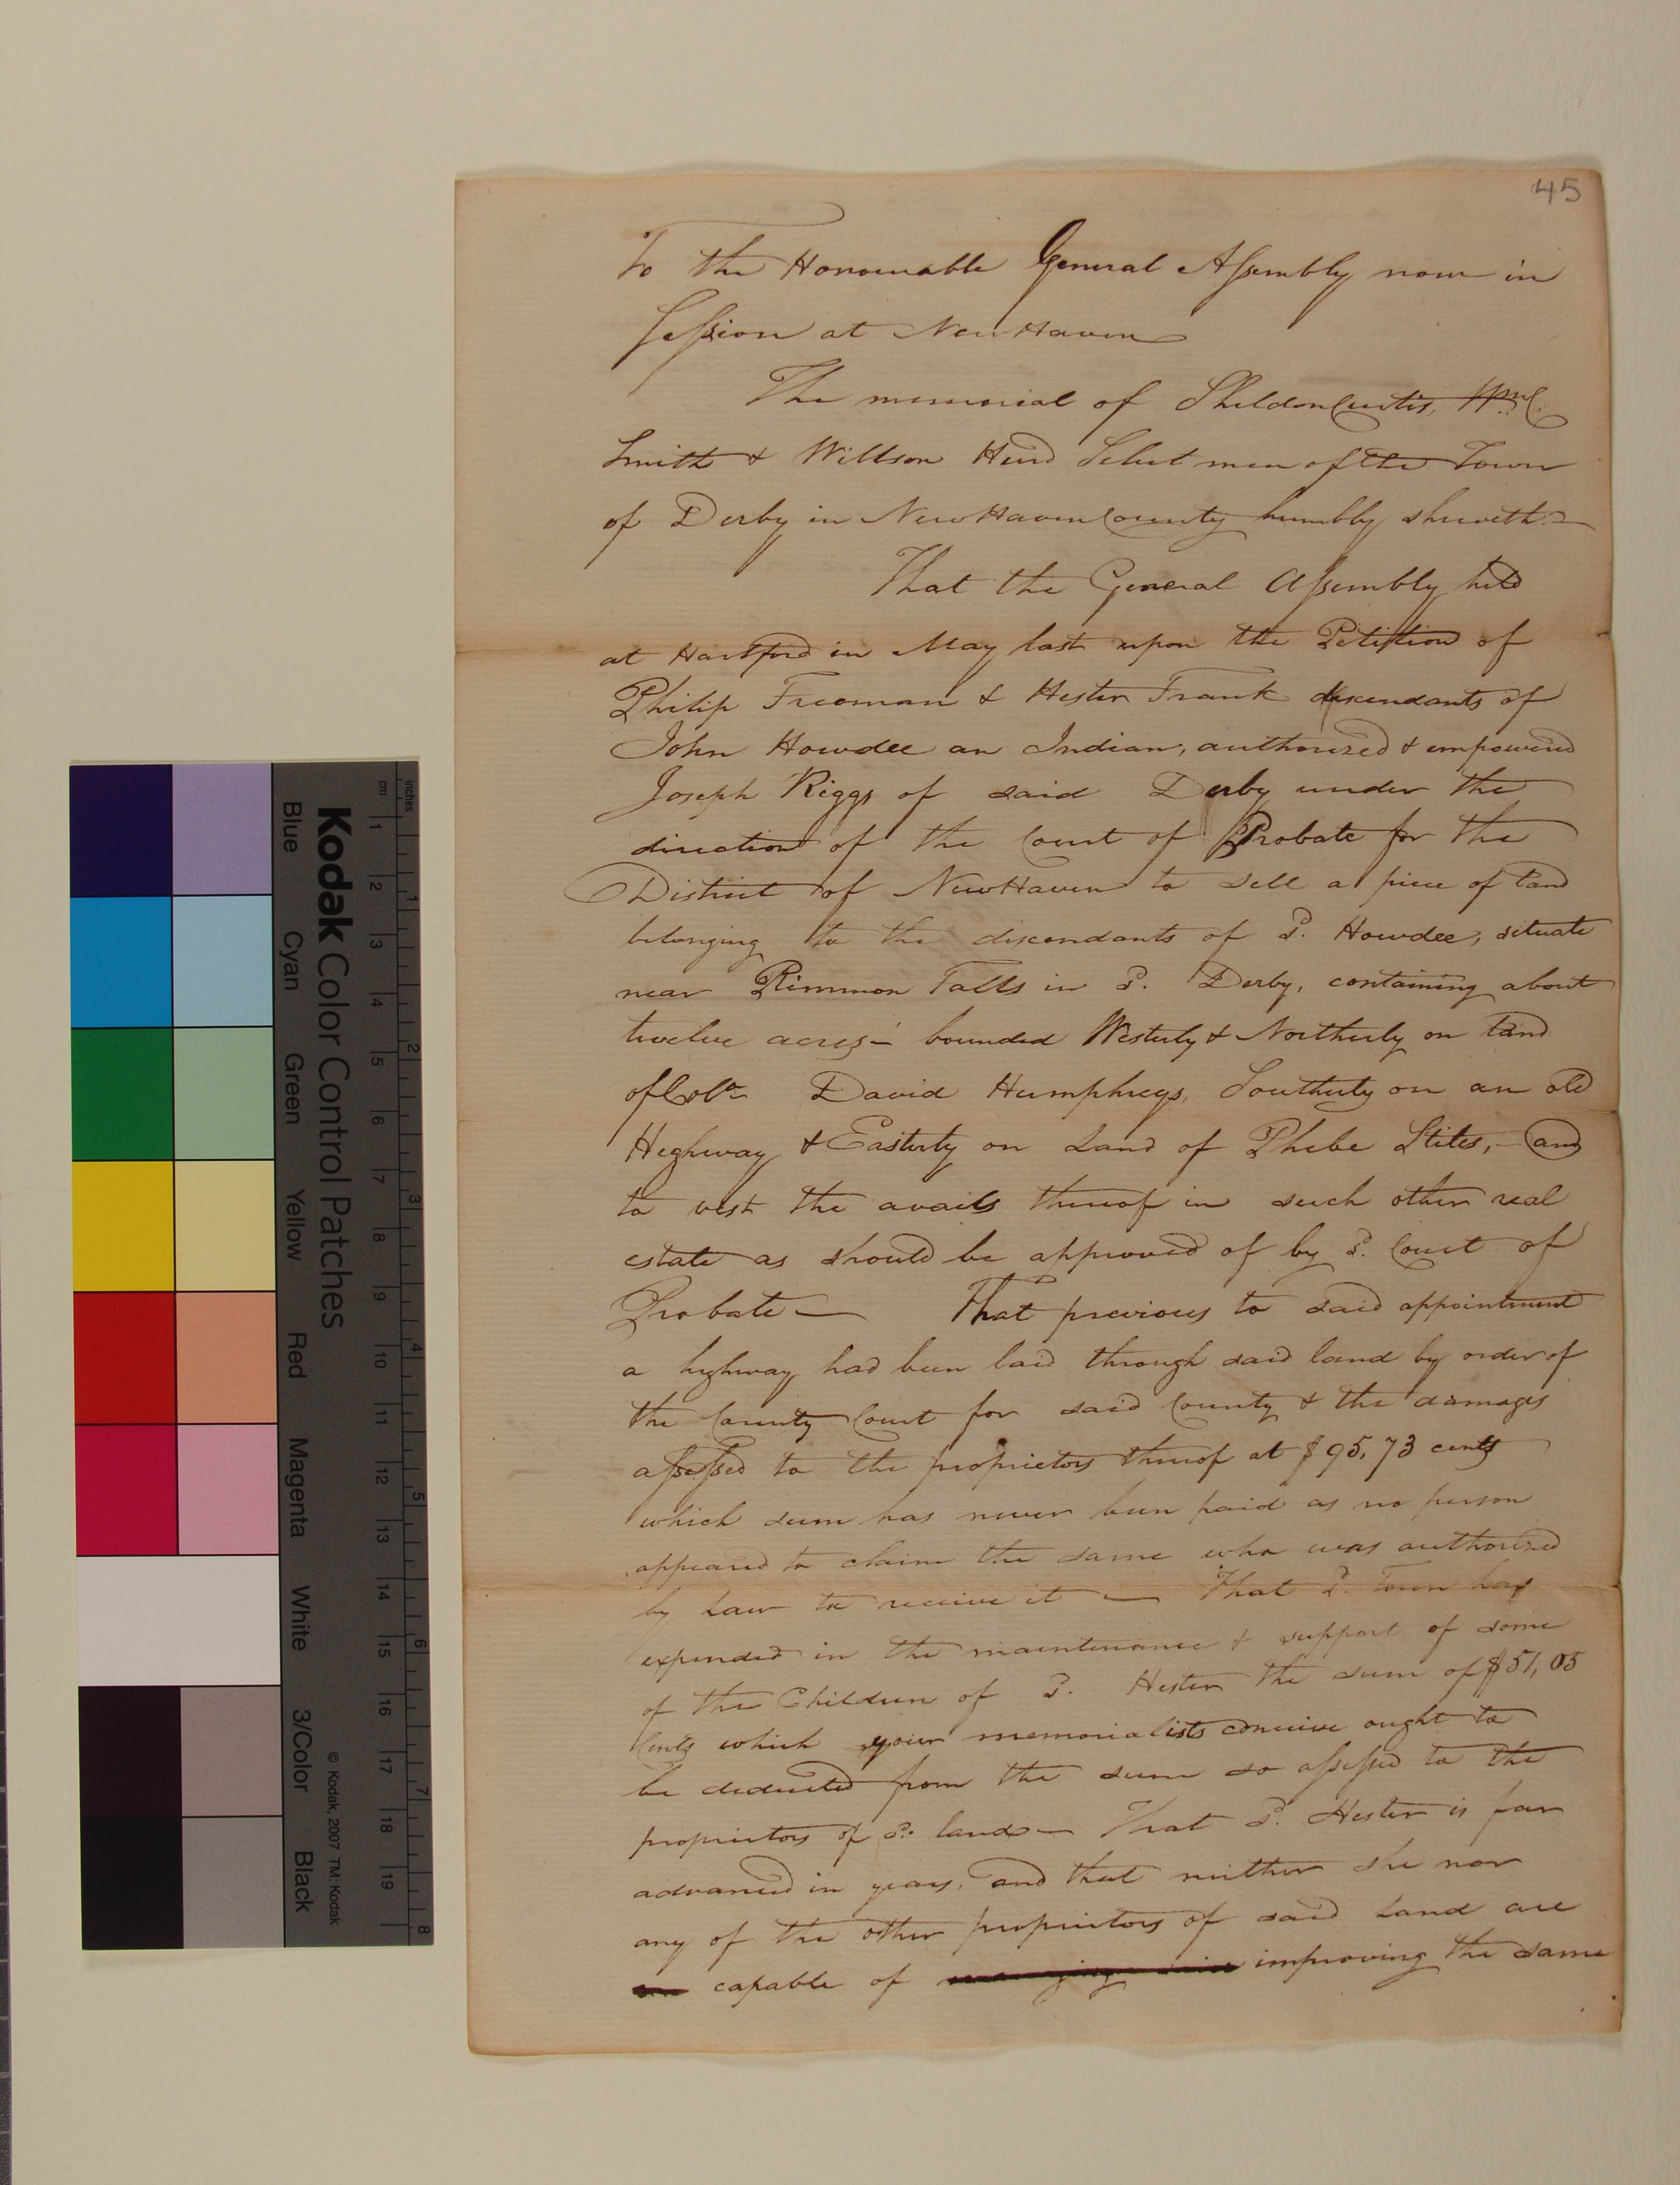 45
To the Honourable General Assembly now in
Session at New Haven
The memorial of Sheldon Curtis, Wm. C.
Smith & Willson Hurd Select men of the Town
of Derby in New Haven County humbly sheweth =
That the General Assembly held
at Hartford in May last upon the Petition of
Philip Freeman & Hester Frank descendants of
John Howdee an Indian, authorized & empowered
Joseph Riggs of said Derby under the
direction of the Court of Probate for the
District of New Haven to sell a piece of land
belonging to the discendants of Sd. Howdee, situate
near Rimmon Falls in Sd. Derby, containing about
twelve acres – bounded Westerly & Northerly on land
of Colo. David Humphreys, Southerly on an old
Highway & Easterly on Land of Phebe Stiles, – and
to vest the avails thereof in such other real
estate as should be approved of by Sd. Court of
Probate — That previous to said appointment
a highway had been laid through said land by order of
the County Court for said County & the damages
assessed to the proprietors thereof at $95,73 cents
which sum has never been paid as no person
appeared to claim the same who was authorized
by Law to receive it — That Sd. Town has
expended in the maintenance & support of some
of the Children of Sd. Hester the sum of $51,05
Cents which your memorialists conceive ought to
be deducted from the sum so assessed to the
proprietors of Sd. land — That Sd. Hester is far
advanced in years, and that neither she nor
any of the other proprietors of said Land are
capable of improving the same
Kodak Color Control Patches
Blue Cyan Green Yellow Red Magenta White 3/Color Black
© Kodak, 2007 TM: Kodak
inches 1 2 3 4 5 6 7 8
cm 1 2 3 4 5 6 7 8 9 10 11 12 13 14 15 16 17 18 19